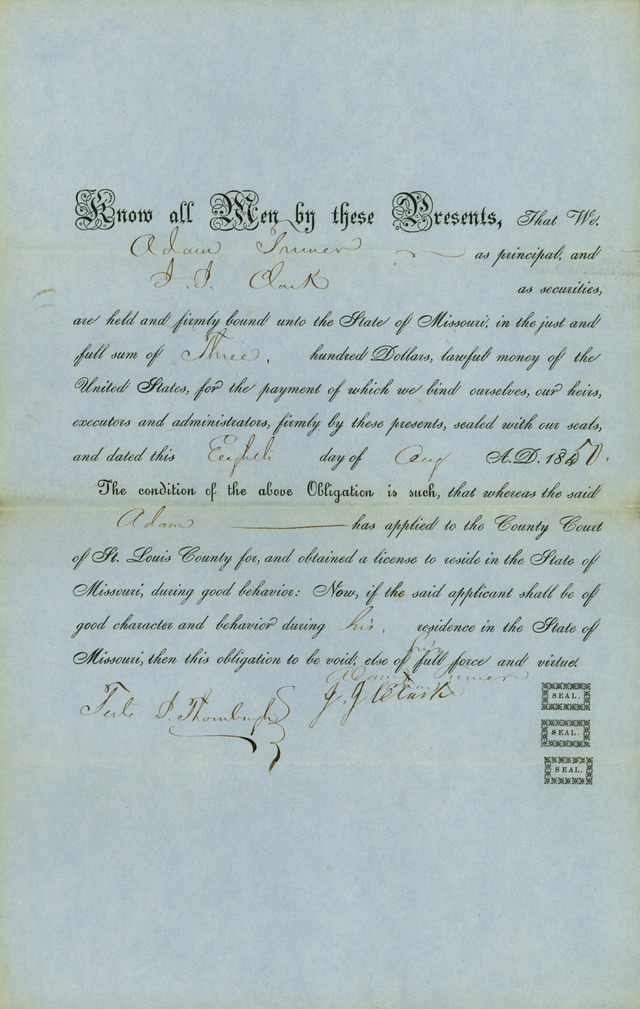 Know all Men by these Presents, That We,
Adam Turner as principal, and
J. J. Clark as securities,
are held and firmly bound unto the State of Missouri, in the just and
full sum of Three, hundred Dollars, lawful money of the
United States, for the payment of which we bind ourselves, our heirs,
executors and administrators, firmly by these presents, sealed with our seals,
and dated this Eighth day of Aug A.D. 1850.
The condition of the above Obligation is such, that whereas the said
Adam has applied to the County Court
of St. Louis County for, and obtained a license to reside in the State of
Missouri, during good behavior: Now, if the said applicant shall be of
good character and behavior during his residence in the State of
Missouri, then this obligation to be void, else of full force and virtue.
his
Adam X Turner SEAL.
J. J. Clark SEAL.
SEAL.
Test J. Thornburgh